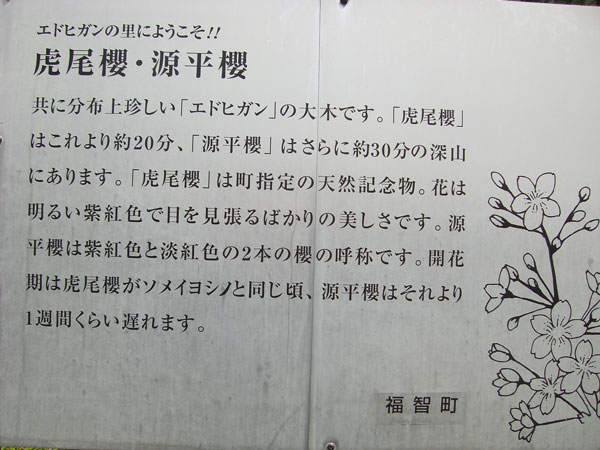 エドヒガンの里にようこそ!!
虎尾櫻・源平櫻
共に分布上珍しい「エドヒガン」の大木です。「虎尾櫻」
はこれより約20分、「源平櫻」はさらに約30分の深山
にあります。「虎尾櫻」は町指定の天然記念物。花は
明るい紫紅色で目を見張るばかりの美しさです。源
平櫻は紫紅色と淡紅色の2本の櫻の呼称です。開花
期は虎尾櫻がソメイヨシノと同じ頃、源平櫻はそれより
1週間くらい遅れます。
福智町